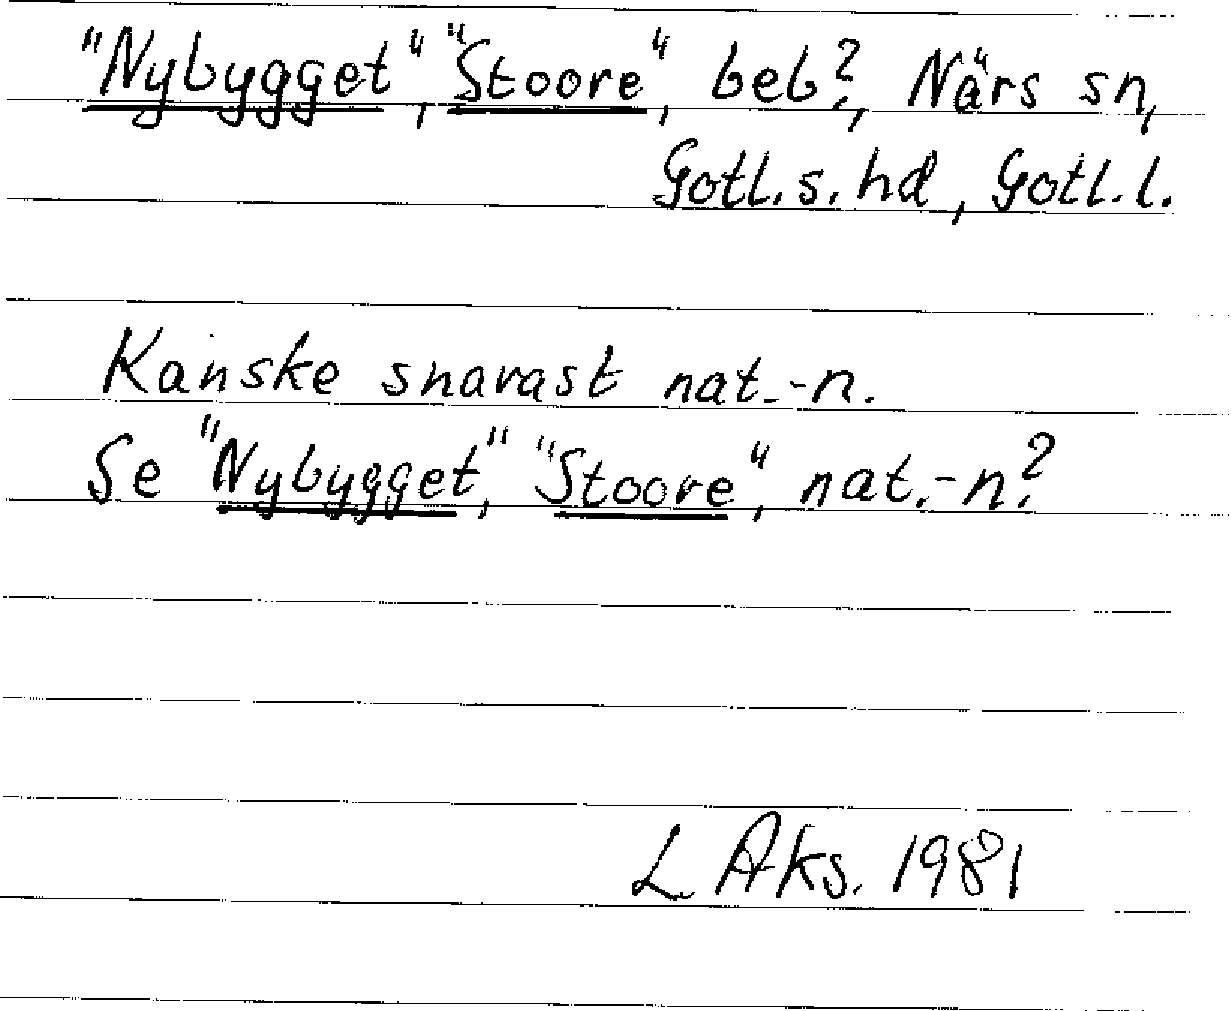 "Nybygget", "Stoore", beb?, Närs sn,
Gotl.s.hd, Gotl.l.
Kanske snarast nat.-n.
Se "Nybygget," "Stoore", nat.-n.?
L Aks. 1981